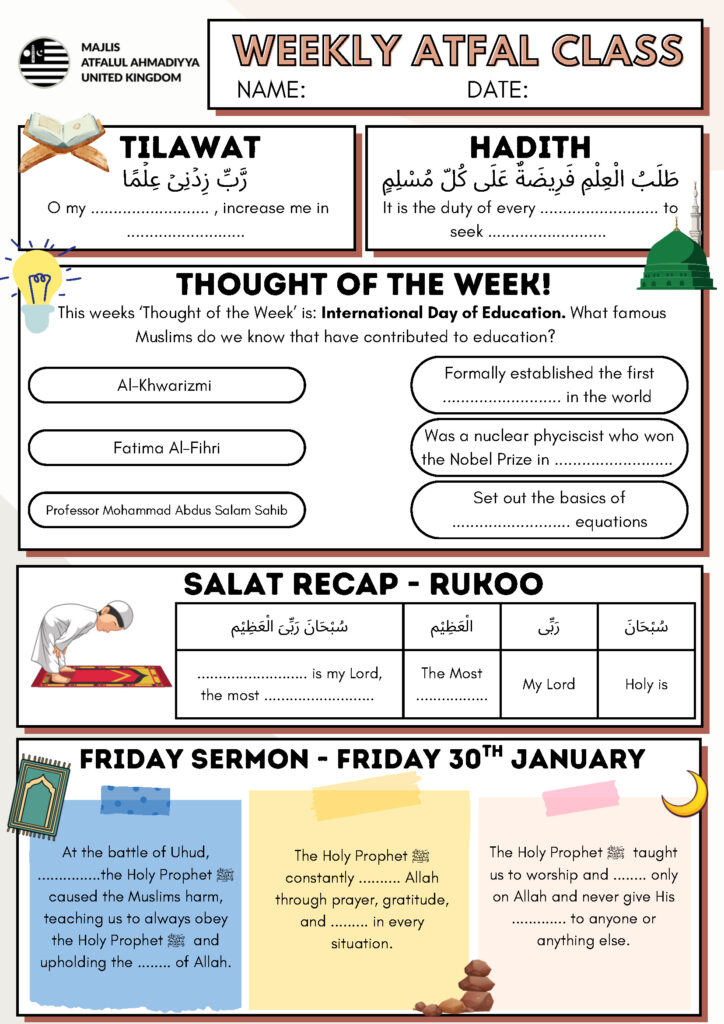 MAJLIS
ATFALUL AHMADIYYA
UNITED KINGDOM
WEEKLY ATFAL CLASS
NAME: DATE:
TILAWAT
رَّبِّ زِدْنِیْ عِلْمًا
O my .......................... , increase me in
..........................
HADITH
طَلَبُ الْعِلْمِ فَرِيضَةٌ عَلَى كُلِّ مُسْلِمٍ
It is the duty of every .......................... to
seek ..........................
THOUGHT OF THE WEEK!
This weeks ‘Thought of the Week’ is: International Day of Education. What famous
Muslims do we know that have contributed to education?
Al-Khwarizmi
Formally established the first
.......................... in the world
Fatima Al-Fihri
Was a nuclear phyciscist who won
the Nobel Prize in ..........................
Professor Mohammad Abdus Salam Sahib
Set out the basics of
.......................... equations
SALAT RECAP - RUKOO
سُبْحَانَ رَبِّیَ الْعَظِیْمِ الْعَظِیْمِ رَبِّی سُبْحَانَ
.......................... is my Lord,
the most ..........................
The Most
.................
My Lord
Holy is
FRIDAY SERMON - FRIDAY 30TH JANUARY
At the battle of Uhud,
...............the Holy Prophet ﷺ
caused the Muslims harm,
teaching us to always obey
the Holy Prophet ﷺ and
upholding the ........ of Allah.
The Holy Prophet ﷺ
constantly .......... Allah
through prayer, gratitude,
and ......... in every
situation.
The Holy Prophet ﷺ taught
us to worship and ........ only
on Allah and never give His
............. to anyone or
anything else.